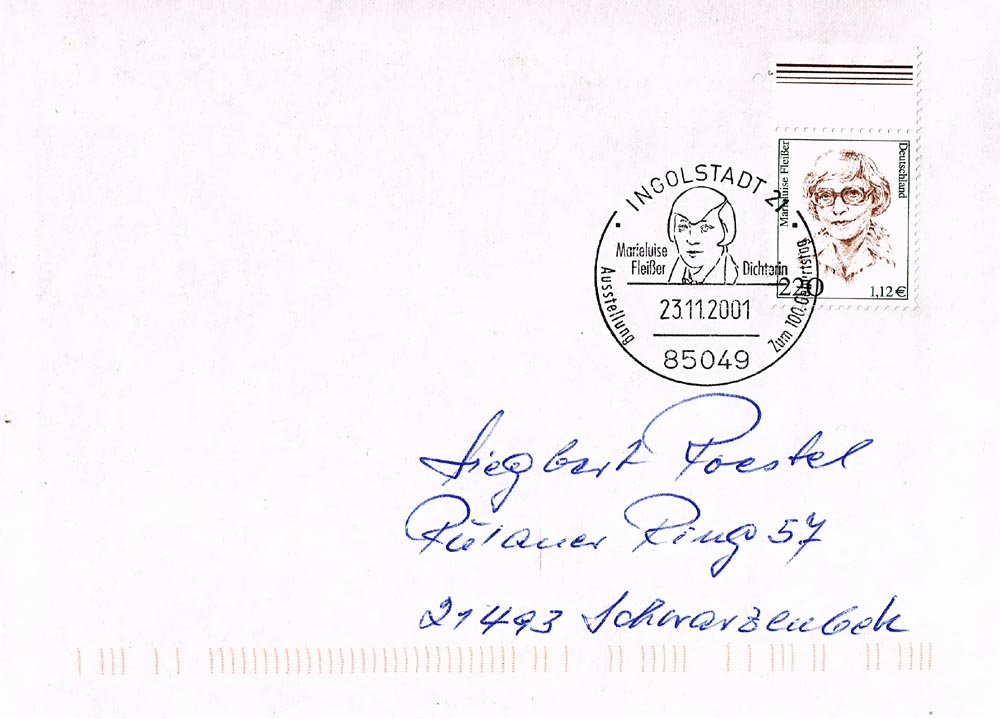 Marieluise Fleißer
Deutschland
220
1,12 €
INGOLSTADT 21
Marieluise
Fleißer
Dichterin
Ausstellung
Zum 100. Geburtstag
23.11.2001
85049
Siegbert Poestel
Ring 57
21493 Schwarzenbek